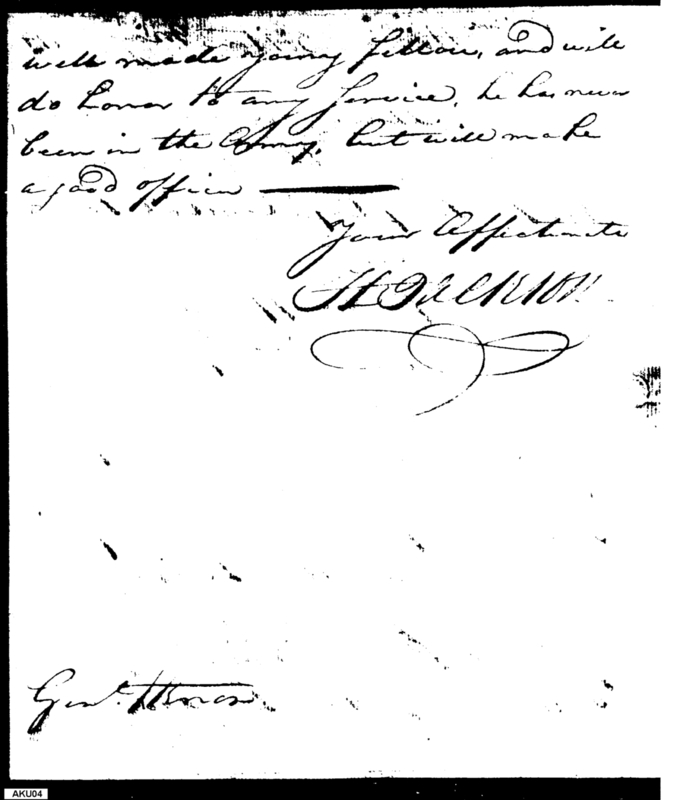 well made young fellow, and will
do honor to any Service, he has never
been in the Army, but will make
a good officer
Your Affectionate
H Jackson
Genl. Knox
AKU04